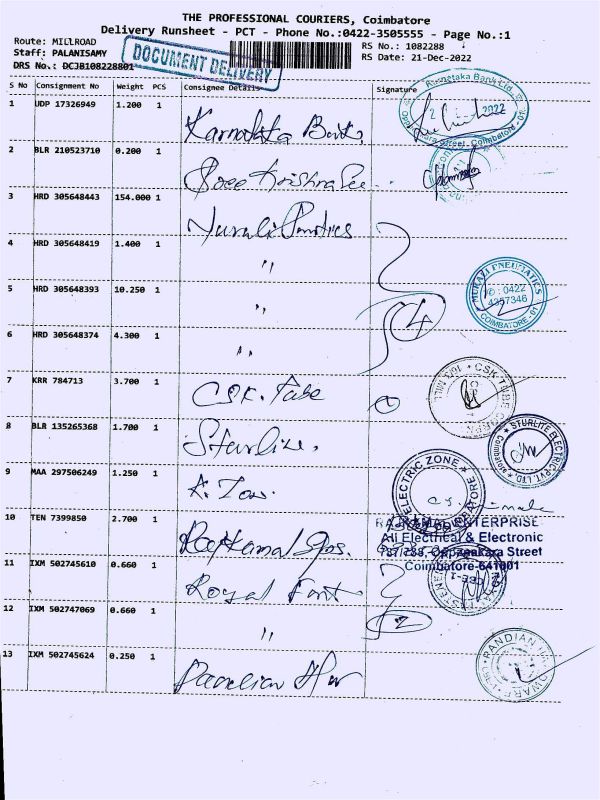 THE PROFESSIONAL COURIERS, Coimbatore
Delivery Runsheet - PCT - Phone No.:0422-3505555 - Page No.:1
Route: MILLROAD
Staff: PALANISAMY
DRS No.: DCJB108228801
DOCUMENT DELIVERY
RS No.: 1082288
RS Date: 21-Dec-2022
S No Consignment No Weight PCS Consignee Details Signature
1 UDP 17326949 1.200 1 Karnataka Bank
Karnataka Bank Ltd.
2022
Street, Coimbatore - 01
2 BLR 210523710 0.200 1 Sree Krishna
3 HRD 305648443 154.000 1
4 HRD 305648419 1.400 1 "
5 HRD 305648393 10.250 1 "
4
MURALI PNEUMATICS
0422
4357346
COIMBATORE - 01
6 HRD 305648374 4.300 1 "
7 KRR 784713 3.700 1 CSK. Tube
CSK TUBE
8 BLR 135265368 1.700 1 Starlite.
STURLITE ELECTRIC PVT. LTD.
Coimbatore
9 MAA 297506249 1.250 1
ELECTRIC ZONE
10 TEN 7399850 2.700 1 Rajkamal
RAJKAMAL ENTERPRISE
All Electrical & Electronic
Oppanakara Street
Coimbatore-641001
11 IXM 502745610 0.660 1 Royal
12 IXM 502747069 0.660 1 "
2
13 IXM 502745624 0.250 1 Pandian
PANDIAN